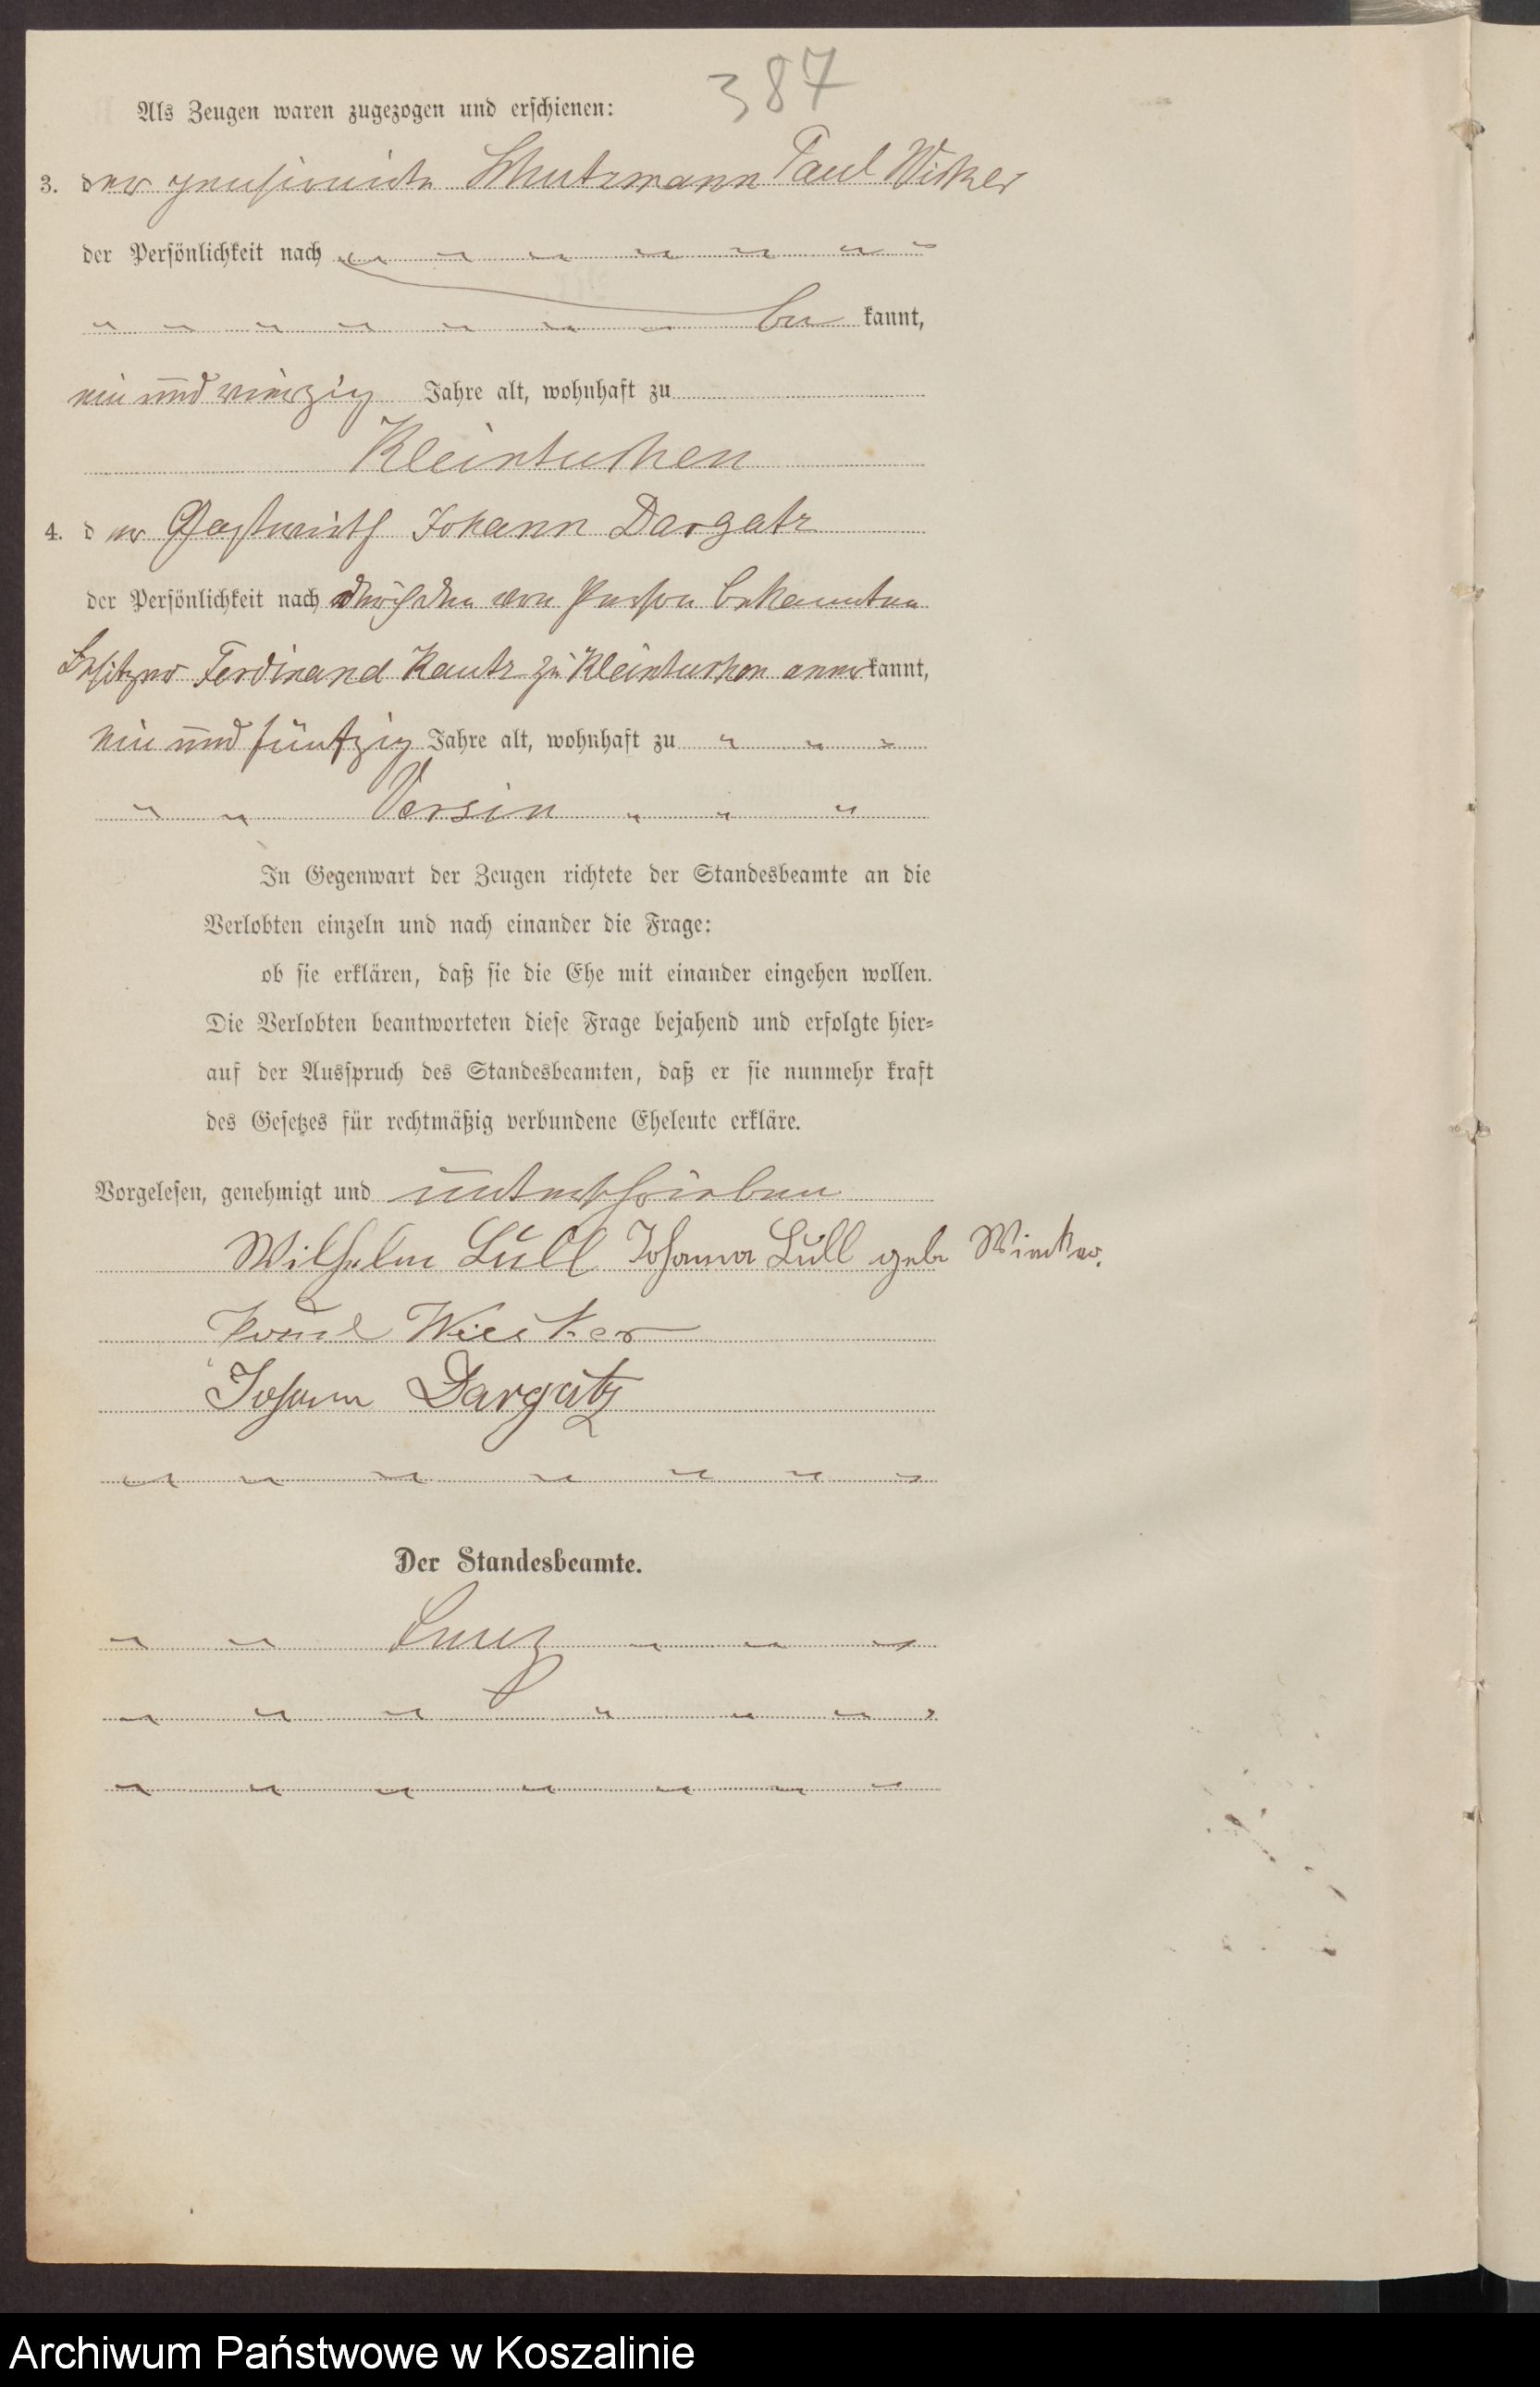 387
Als Zeugen waren zugezogen und erschienen:
3. der pensionirte Schutzmann Paul Wiker
der Persönlichkeit nach
be kannt,
ein und vierzig Jahre alt, wohnhaft zu
Kleintuchen
4. der Gastwirth Johann Dargatz
der Persönlichkeit nach durch den von Person bekannten
Besitzer Ferdinand Kautz zu Kleintuchen anerkannt,
ein und fünfzig Jahre alt, wohnhaft zu
Versin
In Gegenwart der Zeugen richtete der Standesbeamte an die
Verlobten einzeln und nach einander die Frage:
ob sie erklären, daß sie die Ehe mit einander eingehen wollen.
Die Verlobten beantworteten diese Frage bejahend und erfolgte hier=
auf der Ausspruch des Standesbeamten, daß er sie nunmehr kraft
des Gesetzes für rechtmäßig verbundene Eheleute erkläre.
Vorgelesen, genehmigt und unterschrieben
Wilhelm Lüll Johanna Lüll geb
Johann Dargatz
Der Standesbeamte.
Archiwum Państwowe w Koszalinie